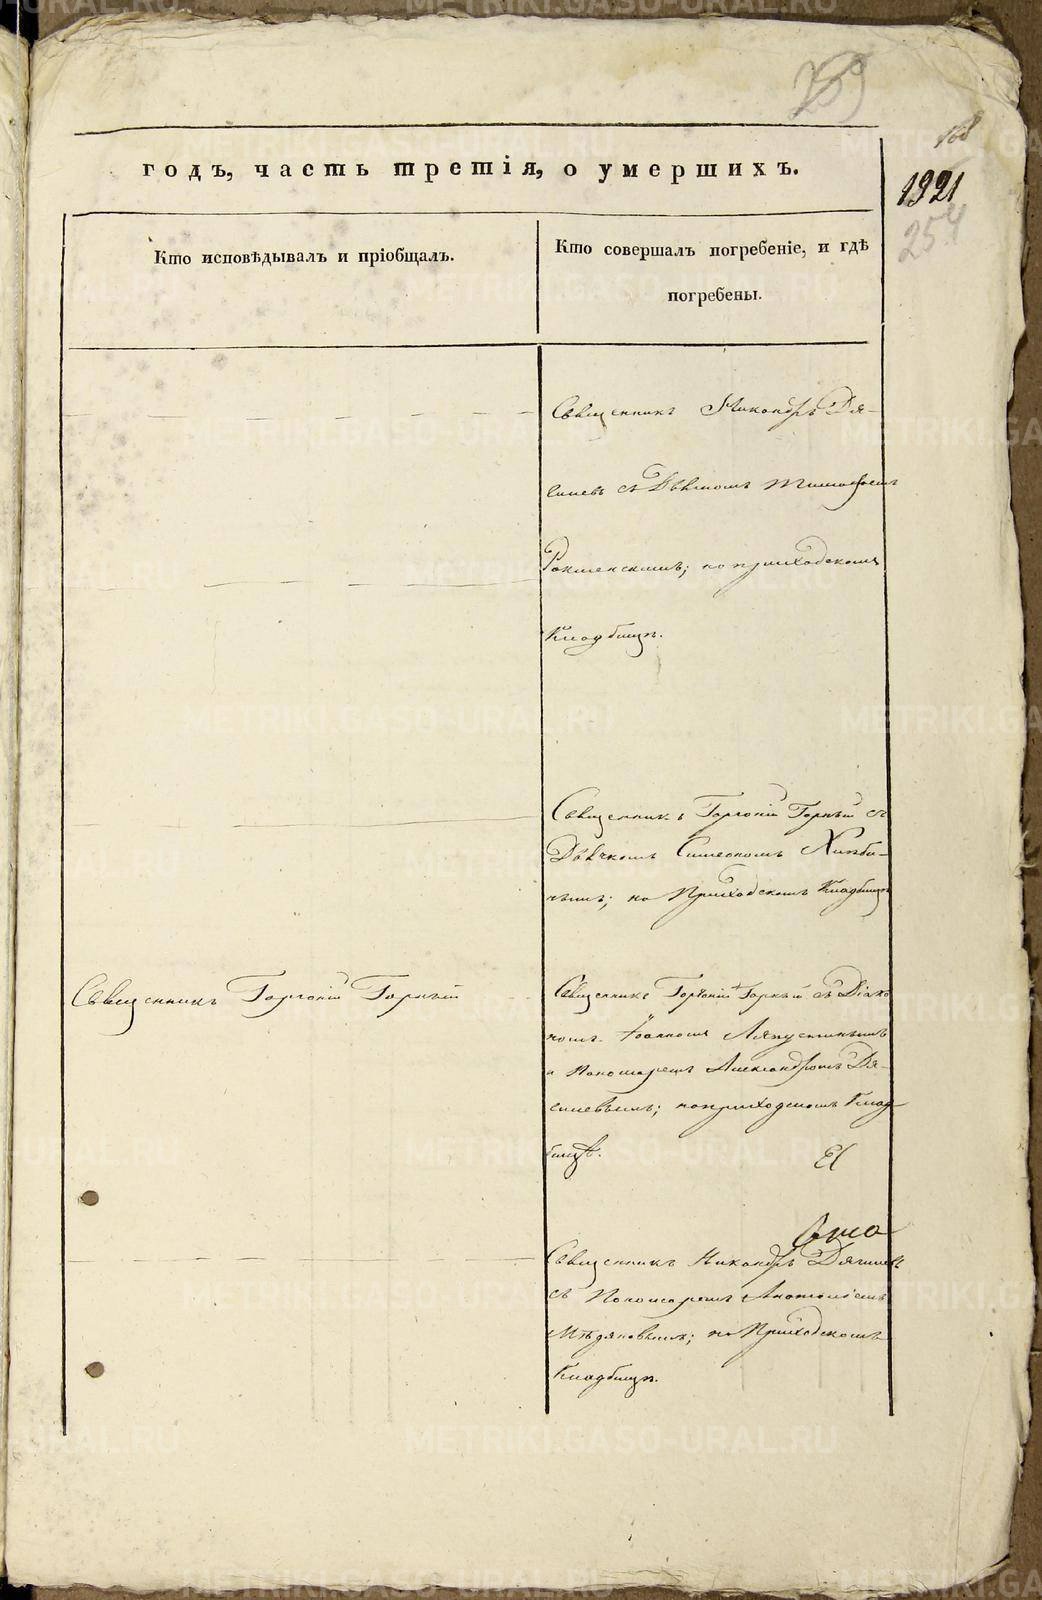 168
годъ, часть третія, о умершихъ.
1921
254
Кто исповѣдывалъ и пріобщалъ.
Кто совершалъ погребеніе, и гдѣ
погребены.
Священникъ Никандръ Дя-
съ Дьячкомъ Тимофеемъ
на приходскомъ
Кладбищѣ.
Священникъ Горгоній Горныій съ
Дьячкомъ Симеономъ
на Приходскомъ Кладбищѣ
Священникъ Горгоній Горныій
Священникъ Горгоній Горныій съ Діако
номъ Іоанномъ Ляпустинымъ
и Пономаремъ Александромъ Дя-
на приходскомъ Клад
бищѣ.
Священникъ Никандръ
съ Пономаремъ Анатоліемъ
на Приходскомъ
Кладбищѣ.
METRIKI.GASO-URAL.RU